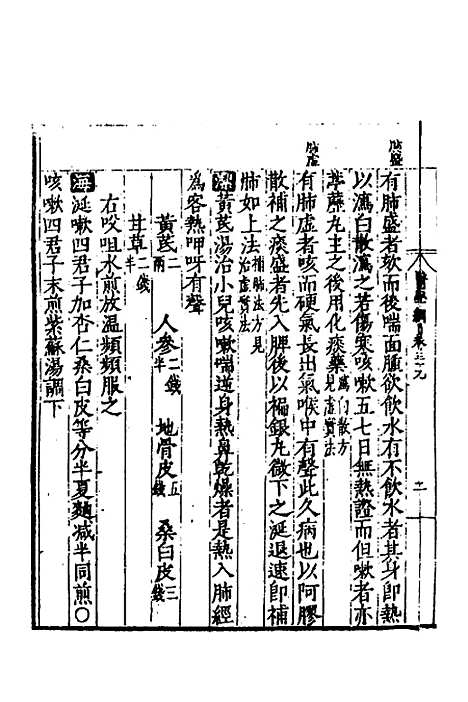 醫學綱目卷三十九
肺盛
有肺盛者咳而後喘面腫欲飲水有不飲水者其身即熱
以瀉白散瀉之若傷寒咳嗽五七日無熱證而但嗽者亦
葶藶丸主之後用化痰藥瀉白散方見虛實法
肺虛
有肺虛者咳而硬氣長出氣喉中有聲此久病也以阿膠
散補之痰盛者先入脾後以褊銀丸微下之涎退速即補
肺如上法補肺法方見治虛實法
黃芪湯治小兒咳嗽喘逆身熱鼻乾燥者是熱入肺經
為客熱呷呀有聲
黃芪二兩 人參二錢半 地骨皮五錢 桑白皮三錢
甘草二錢半
右㕮咀水煎放溫頻頻服之
海 涎嗽四君子加杏仁桑白皮等分半夏麯減半同煎○
咳嗽四君子末煎紫蘇湯調下